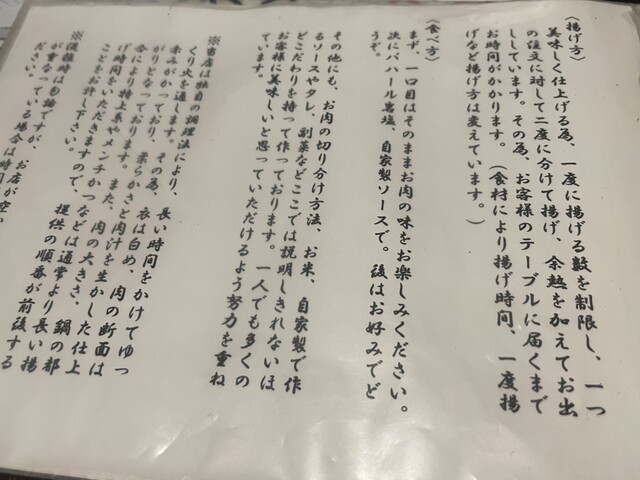 (揚げ方)
美味しく仕上げる為、一度に揚げる数を制限し、一つ
の注文に対して二度に分けて揚げ、余熱を加えてお出
ししています。その為、お客様のテーブルに届くまで
お時間がかかります。(食材により揚げ時間、一度揚
げなど揚げ方は変えています。)
(食べ方)
まず、一口目はそのままお肉の味をお楽しみください。
次にパハール岩塩、自家製ソースで。後はお好みでど
うぞ。
その他にも、お肉の切り分け方法、お米、自家製で作
るソースやタレ、副菜などここでは説明しきれないほ
どこだわりを持って作っております。一人でも多くの
お客様に美味しいと思っていただけるよう努力を重ね
ています。
※当店は独自の調理法により、長い時間をかけてゆっ
くり火を通します。その為、衣は白め、肉の断面は
赤みがかっており、柔らかさと肉汁を生かした仕上
がりとなっております。また、肉の大きさ、鍋の都
合により特上系やメンチかつなどは通常より長い揚
げ時間をいただきますので、提供の順番が前後する
ことをお許し下さい。
※混雑時は勿論ですが、お店が空い
が重なっている場合は時間
ださい。